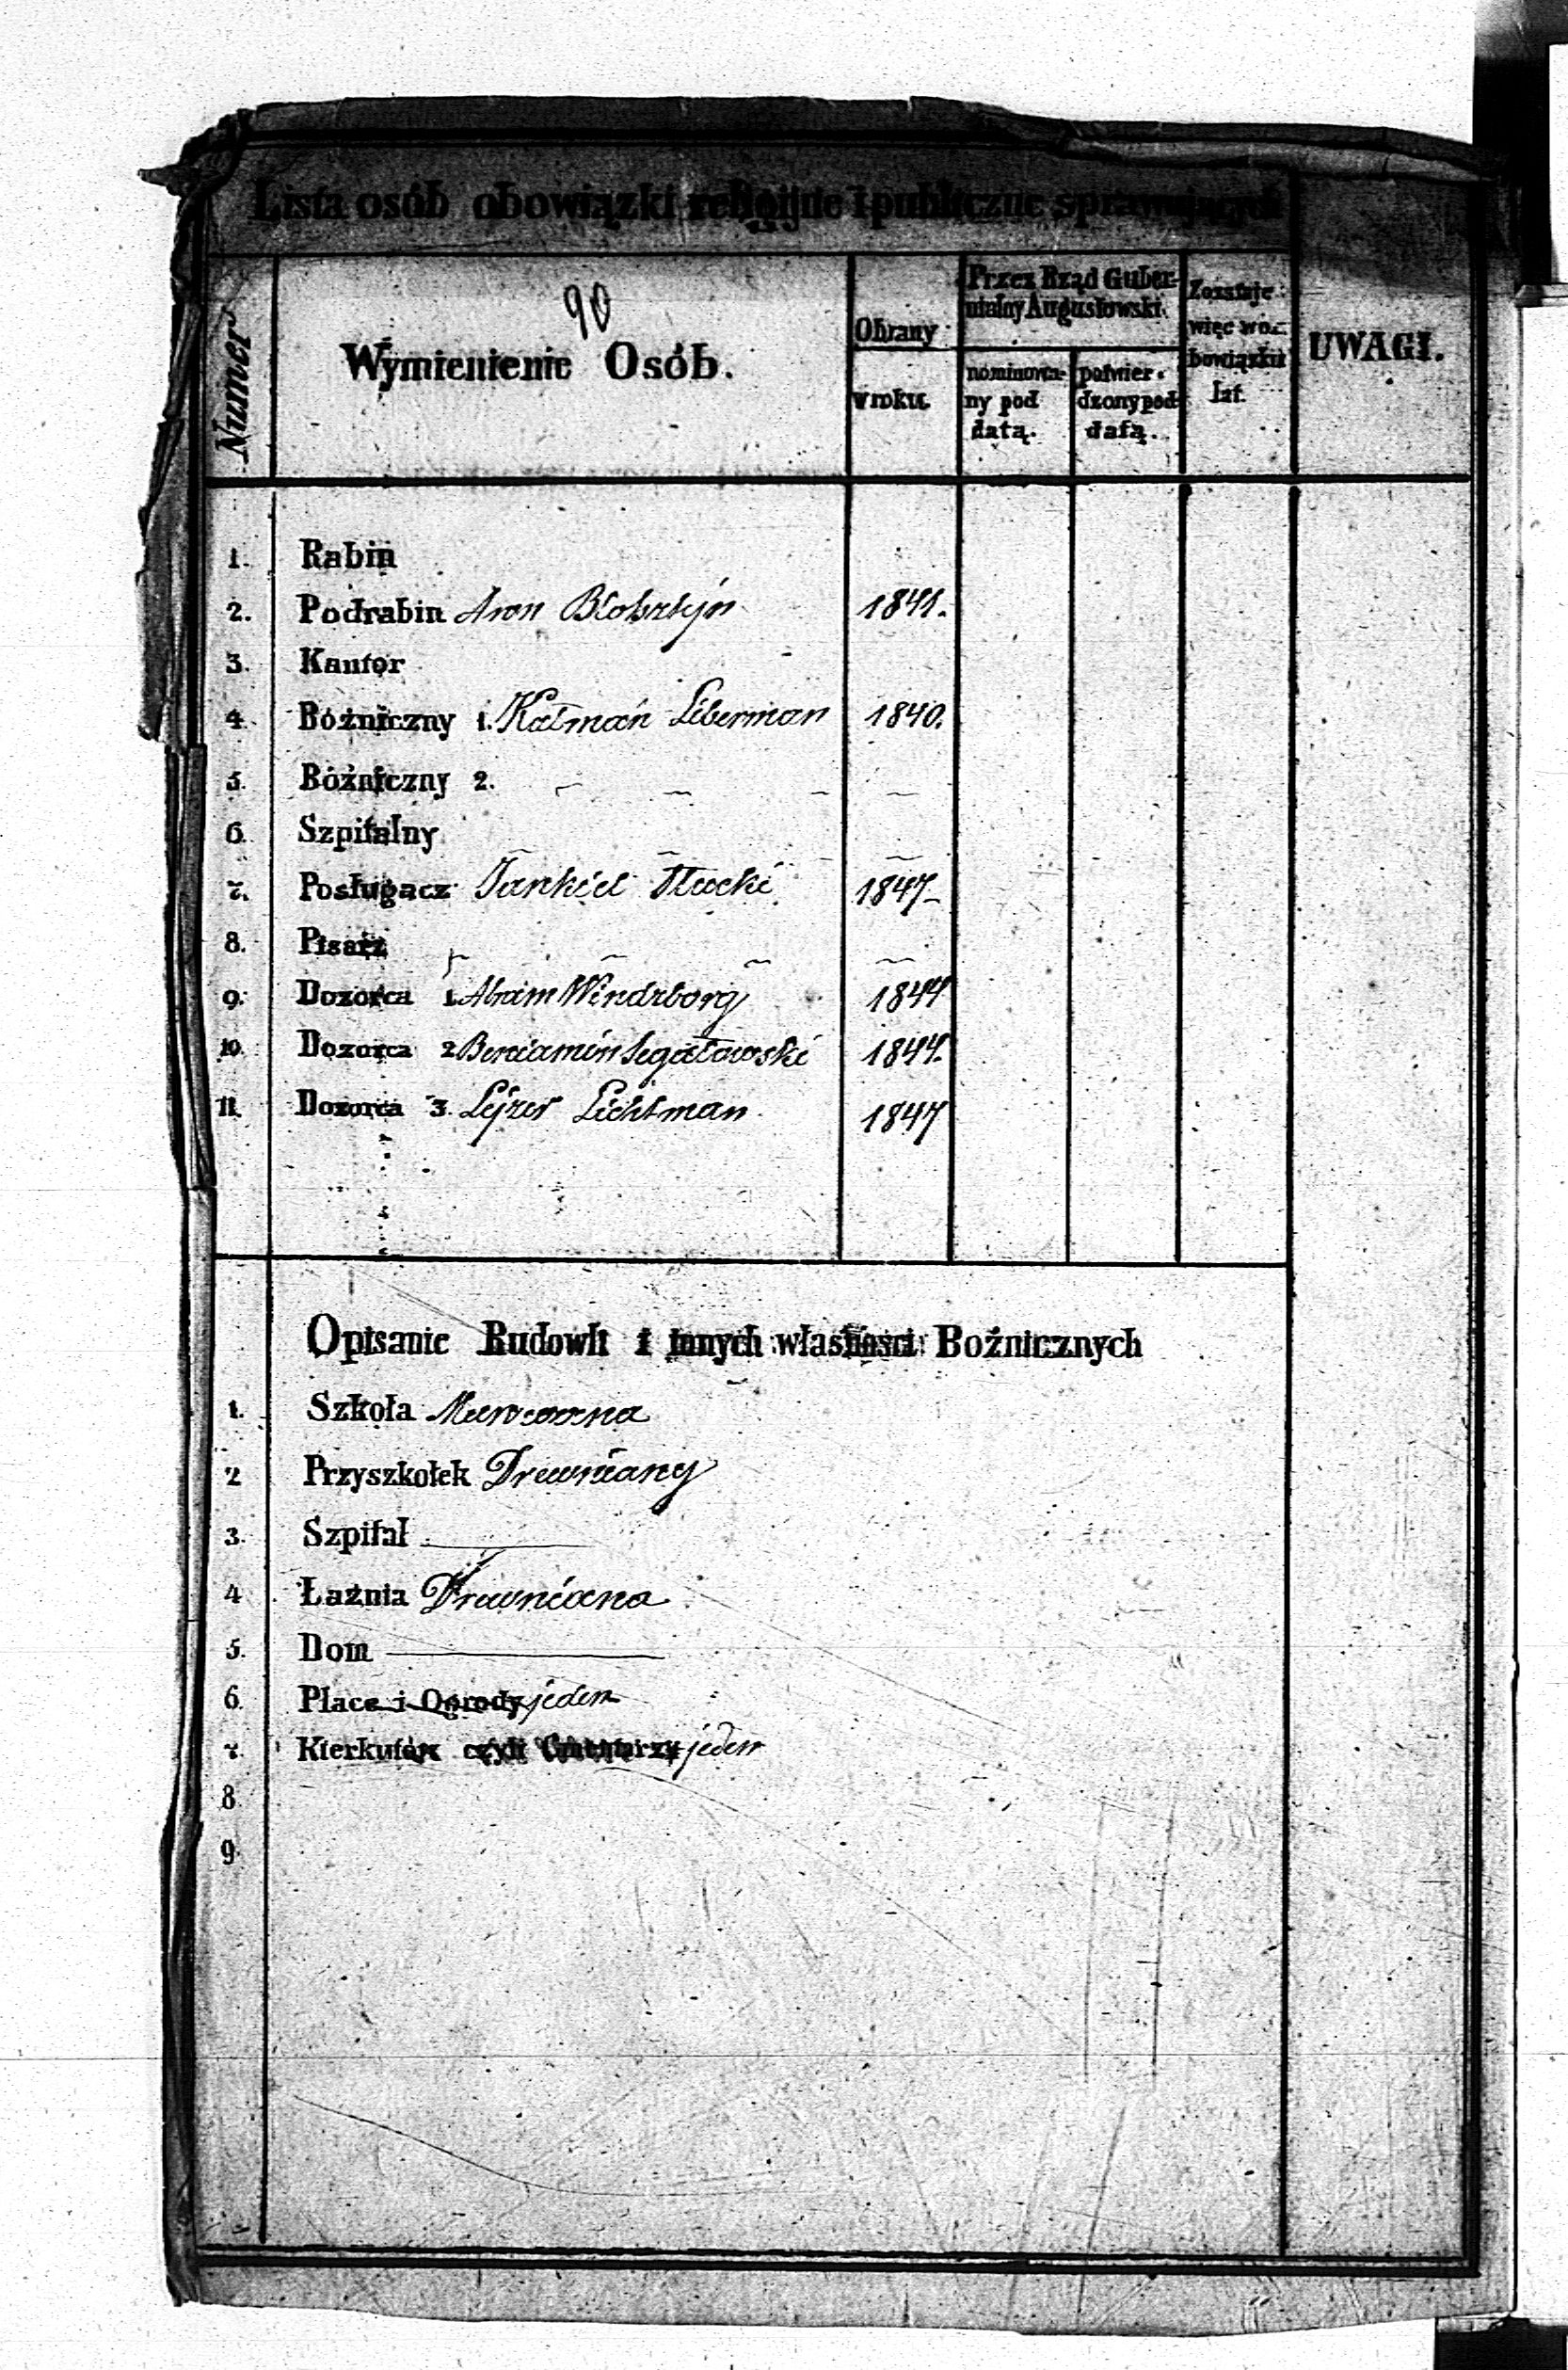 Lista osób obowiązki religijne i publiczne sprawujących
90
Numer
Wymienienie Osób.
Obrany
w roku.
Przez Rząd Guber-
nialny Augustowski.
nominowa-
ny pod
datą.
potwier-
dzony pod
datą.
Zostaje
więc w o-
bowiązku
lat.
UWAGI.
1. Rabin
2. Podrabin Aron 1841.
3. Kantor
4. Bóżniczny 1. Kalman Liberman 1840.
5. Bóżniczny 2.
6. Szpitalny
7. Posługacz Jankiel 1847
8. Pisarz
9. Dozorca 1. Abram Windzborg 1844
10. Dozorca 2 Beniamin Segałowski 1844.
11. Dozorca 3. Lejzer Lichtman 1847
Opisanie Budowli i innych własności Bożnicznych
1. Szkoła Murowana
2 Przyszkołek Drewniany
3. Szpital
4 Łaźnia Drewniana
5. Dom
6. Place i Ogrody jeden
7. Kierkutów czyli Cmentarzy jeden
8
9